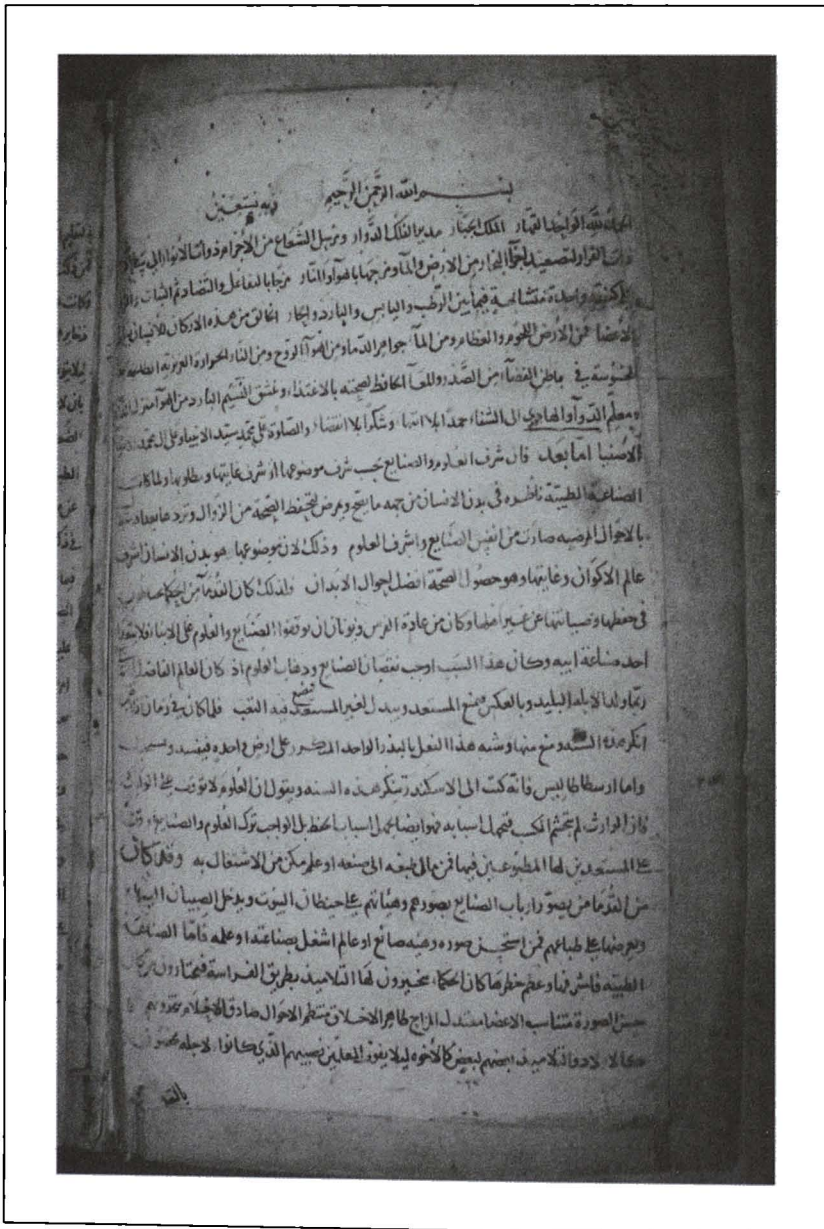 بسم الله الرحمن الرحيم وبه نستعين
الحمد لله الواحد القهار الملك الجبار مدير الفلك الدوار ومرسل الشعاع من الأجرام ذوات الأنوار إلى
ذات القرار لتصعيد أجزآ البخار من الأرض والمآ ومزجها بالهوآ والنار مزجا بالتفاعل والتضاد ثم الثبات
على كيفية واحدة متشابهة فيما بين الرطب واليابس والبارد والحار الخالق من هذه الاركان للانسان
الأعضا فمن الأرض اللحوم والعظام ومن المآ جواهر الدما ومن الهوآ الروح ومن النار الحرارة الغريزية
المحبوسة في باطن الفضآء من الصدر وللمعآ الحافظ لصحته بالاغتذاء وعشق النسيم البارد من الهوآ
ومعلم الدوآ والهادي الى الشفاء حمدا بلا انتها وشكرا بلا انقضاء والصلوة على محمد سيد الانبياء وعلى ال محمد
الأصفيا اما بعد فان شرف العلوم والصنايع بحسب شرف موضوعها او شرف غايتها ومطلوبها ولما كانت
الصناعة الطبية ناظره في بدن الانسان من جهه ما يصح ويمرض لتحفظ الصحة من الزوال وتردها
بالاحوال المرضيه صارت من انفس الصنايع واشرف العلوم وذلك لان موضوعها هو بدن الانسان اشرف
عالم الاكوان وغايتها وهو حصول الصحة افضل احوال الابدان ولذلك كان القدمآ من الحكما
في حفظها وصيانتها عن غير اهلها وكان من عادة الفرس ويونان ان يوقفوا الصنايع والعلوم على الابناء فلا
احد صناعة ابيه وكان هذا السبب اوجب نقصان الصنايع وذهاب العلوم اذ كان العالم الفاضل
ربما ولد الابله البليد وبالعكس فيمنع المستعد ويبذل لغير المستعد فيضيع فيه التعب فلما كان في زمان
انكر هذه السنه ومنع منها وشبه هذا الفعل بالبذر الواحد المتكرر على ارض واحده فيفسد
واما ارسطاطاليس فانه كتب الى الاسكندر ينكر هذه السنه ويقول ان العلوم لا توقف على الوارث
فان الوارث لم يتجشم الكسب فيهمل اسبابه فهو ايضا يهمل اسباب الحفظ بل الواجب ترك العلوم والصنايع
على المستعدين لها المطبوعين فيها فمن مال طبعه الى صنعه او علم مكن من الاشتغال به وقد كان
من القدما من يصور ارباب الصنايع بصورهم وهيئاتهم على حيطان البيوت ويدخل الصبيان اليها
ويعرضها على طباعهم فمن استحسن صوره وهيئه صانع او عالم اشغل بصناعته او علمه فاما الصناعة
الطبيه فلشرفها وعظم خطرها كان الحكماء يتخيرون لها التلاميذ بطريق الفراسة فيختارون من كان
حسن الصورة متناسب الاعضا معتدل المزاج طاهر الاخلاق منتظم الاحوال صادق الاحلام
كالاولاد والتلاميذ بعضهم لبعض كالاخوه ليلا يفوت المعلمين نصيبهم الذي كانوا لاجله